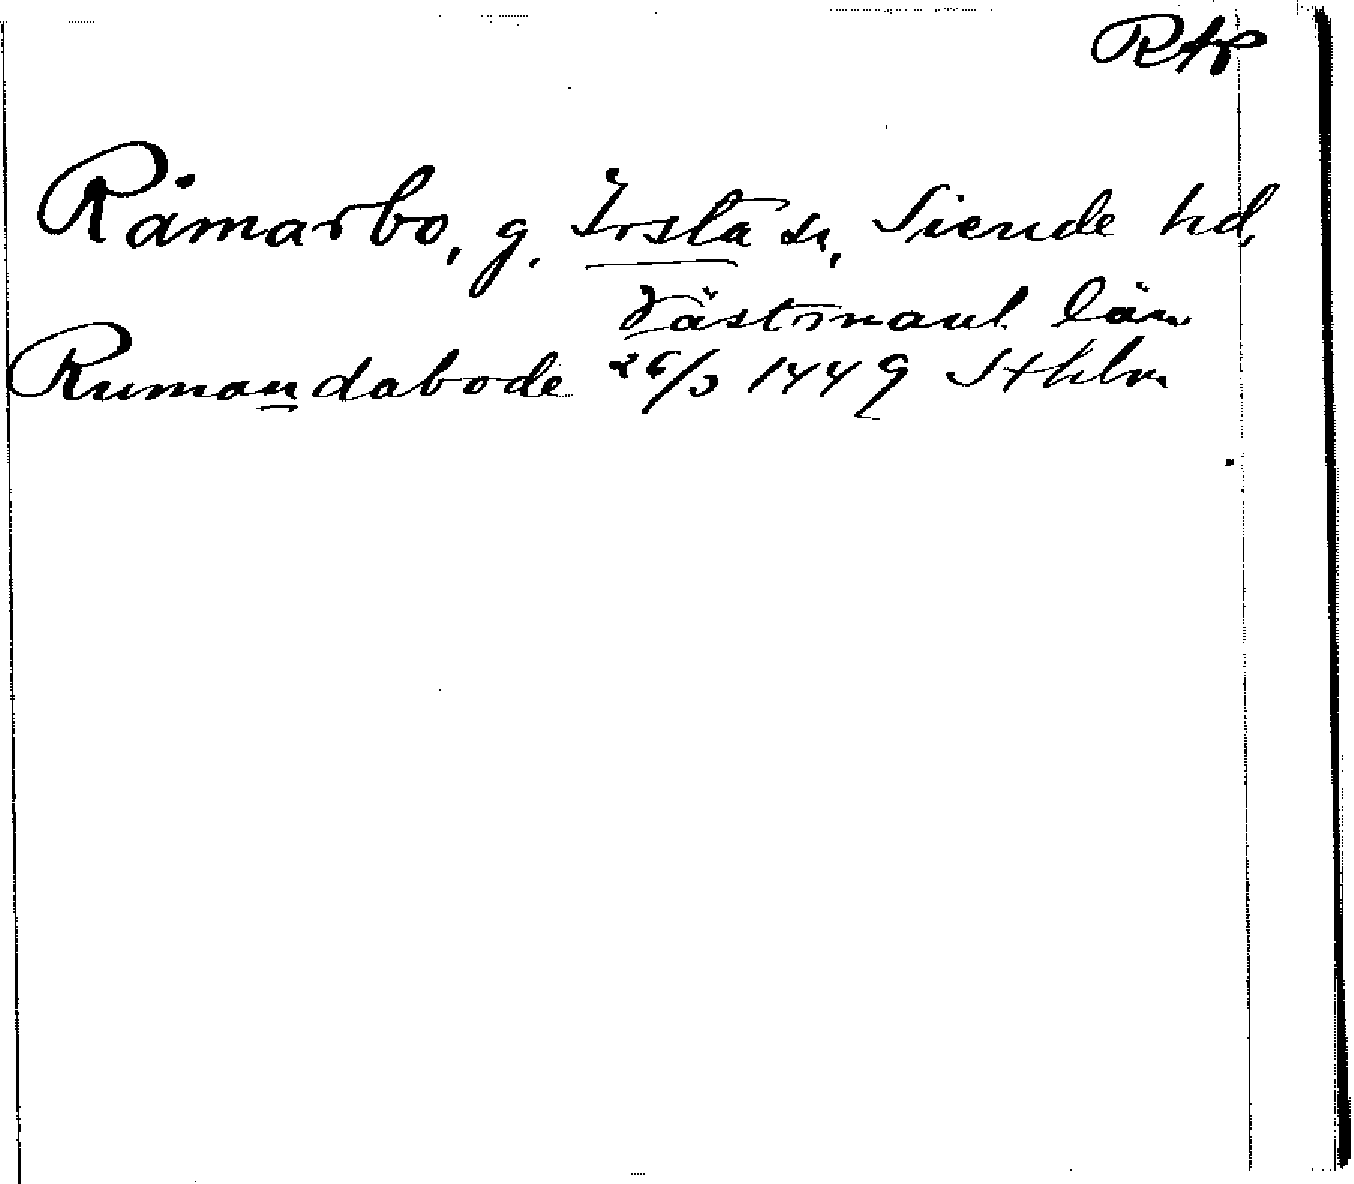 RAp
Råmarbo, g. Irsta sn, Siende hd,
Västmanl. län
Rumandabode 26/3 1449 Sthlm